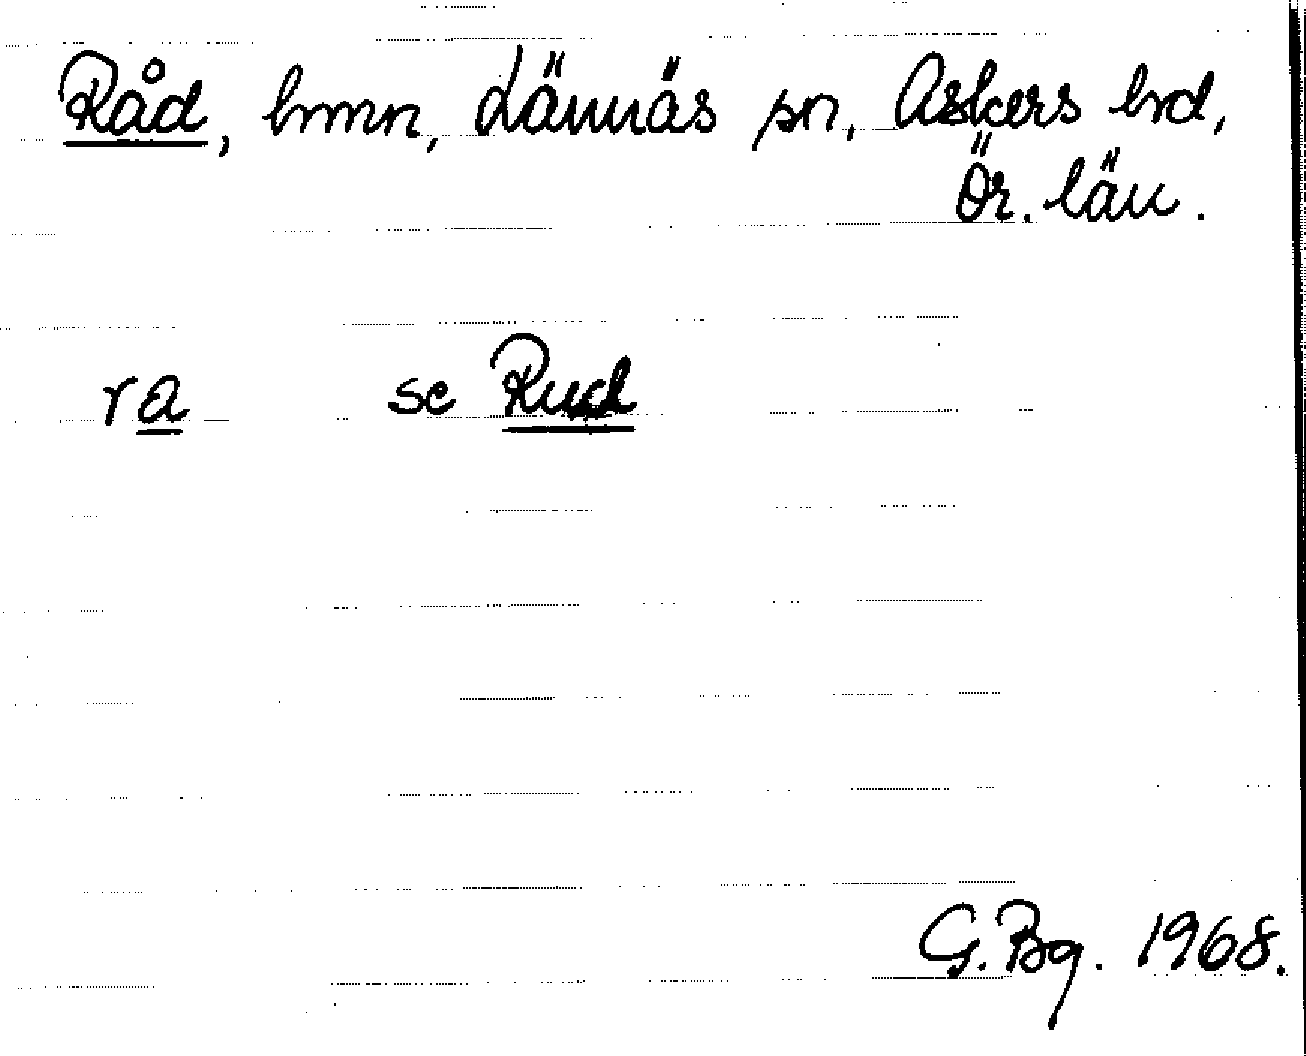 Råd, hmn, Lännäs sn, Askers hd,
Ör. län.
ra se Rud
G. Bg. 1968.